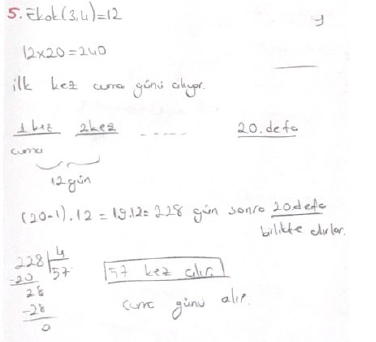 5. Ekok(3,4)=12
12x20=240
ilk kez cuma günü alıyor.
1 kez 2 kez ..... 20. defa
cuma
12 gün
(20-1).12 = 19.12= 228 gün sonra 20.defa
birlikte alırlar.
228 | 4
-20 57
28
-28
0
57 kez alır
cuma günü alır.